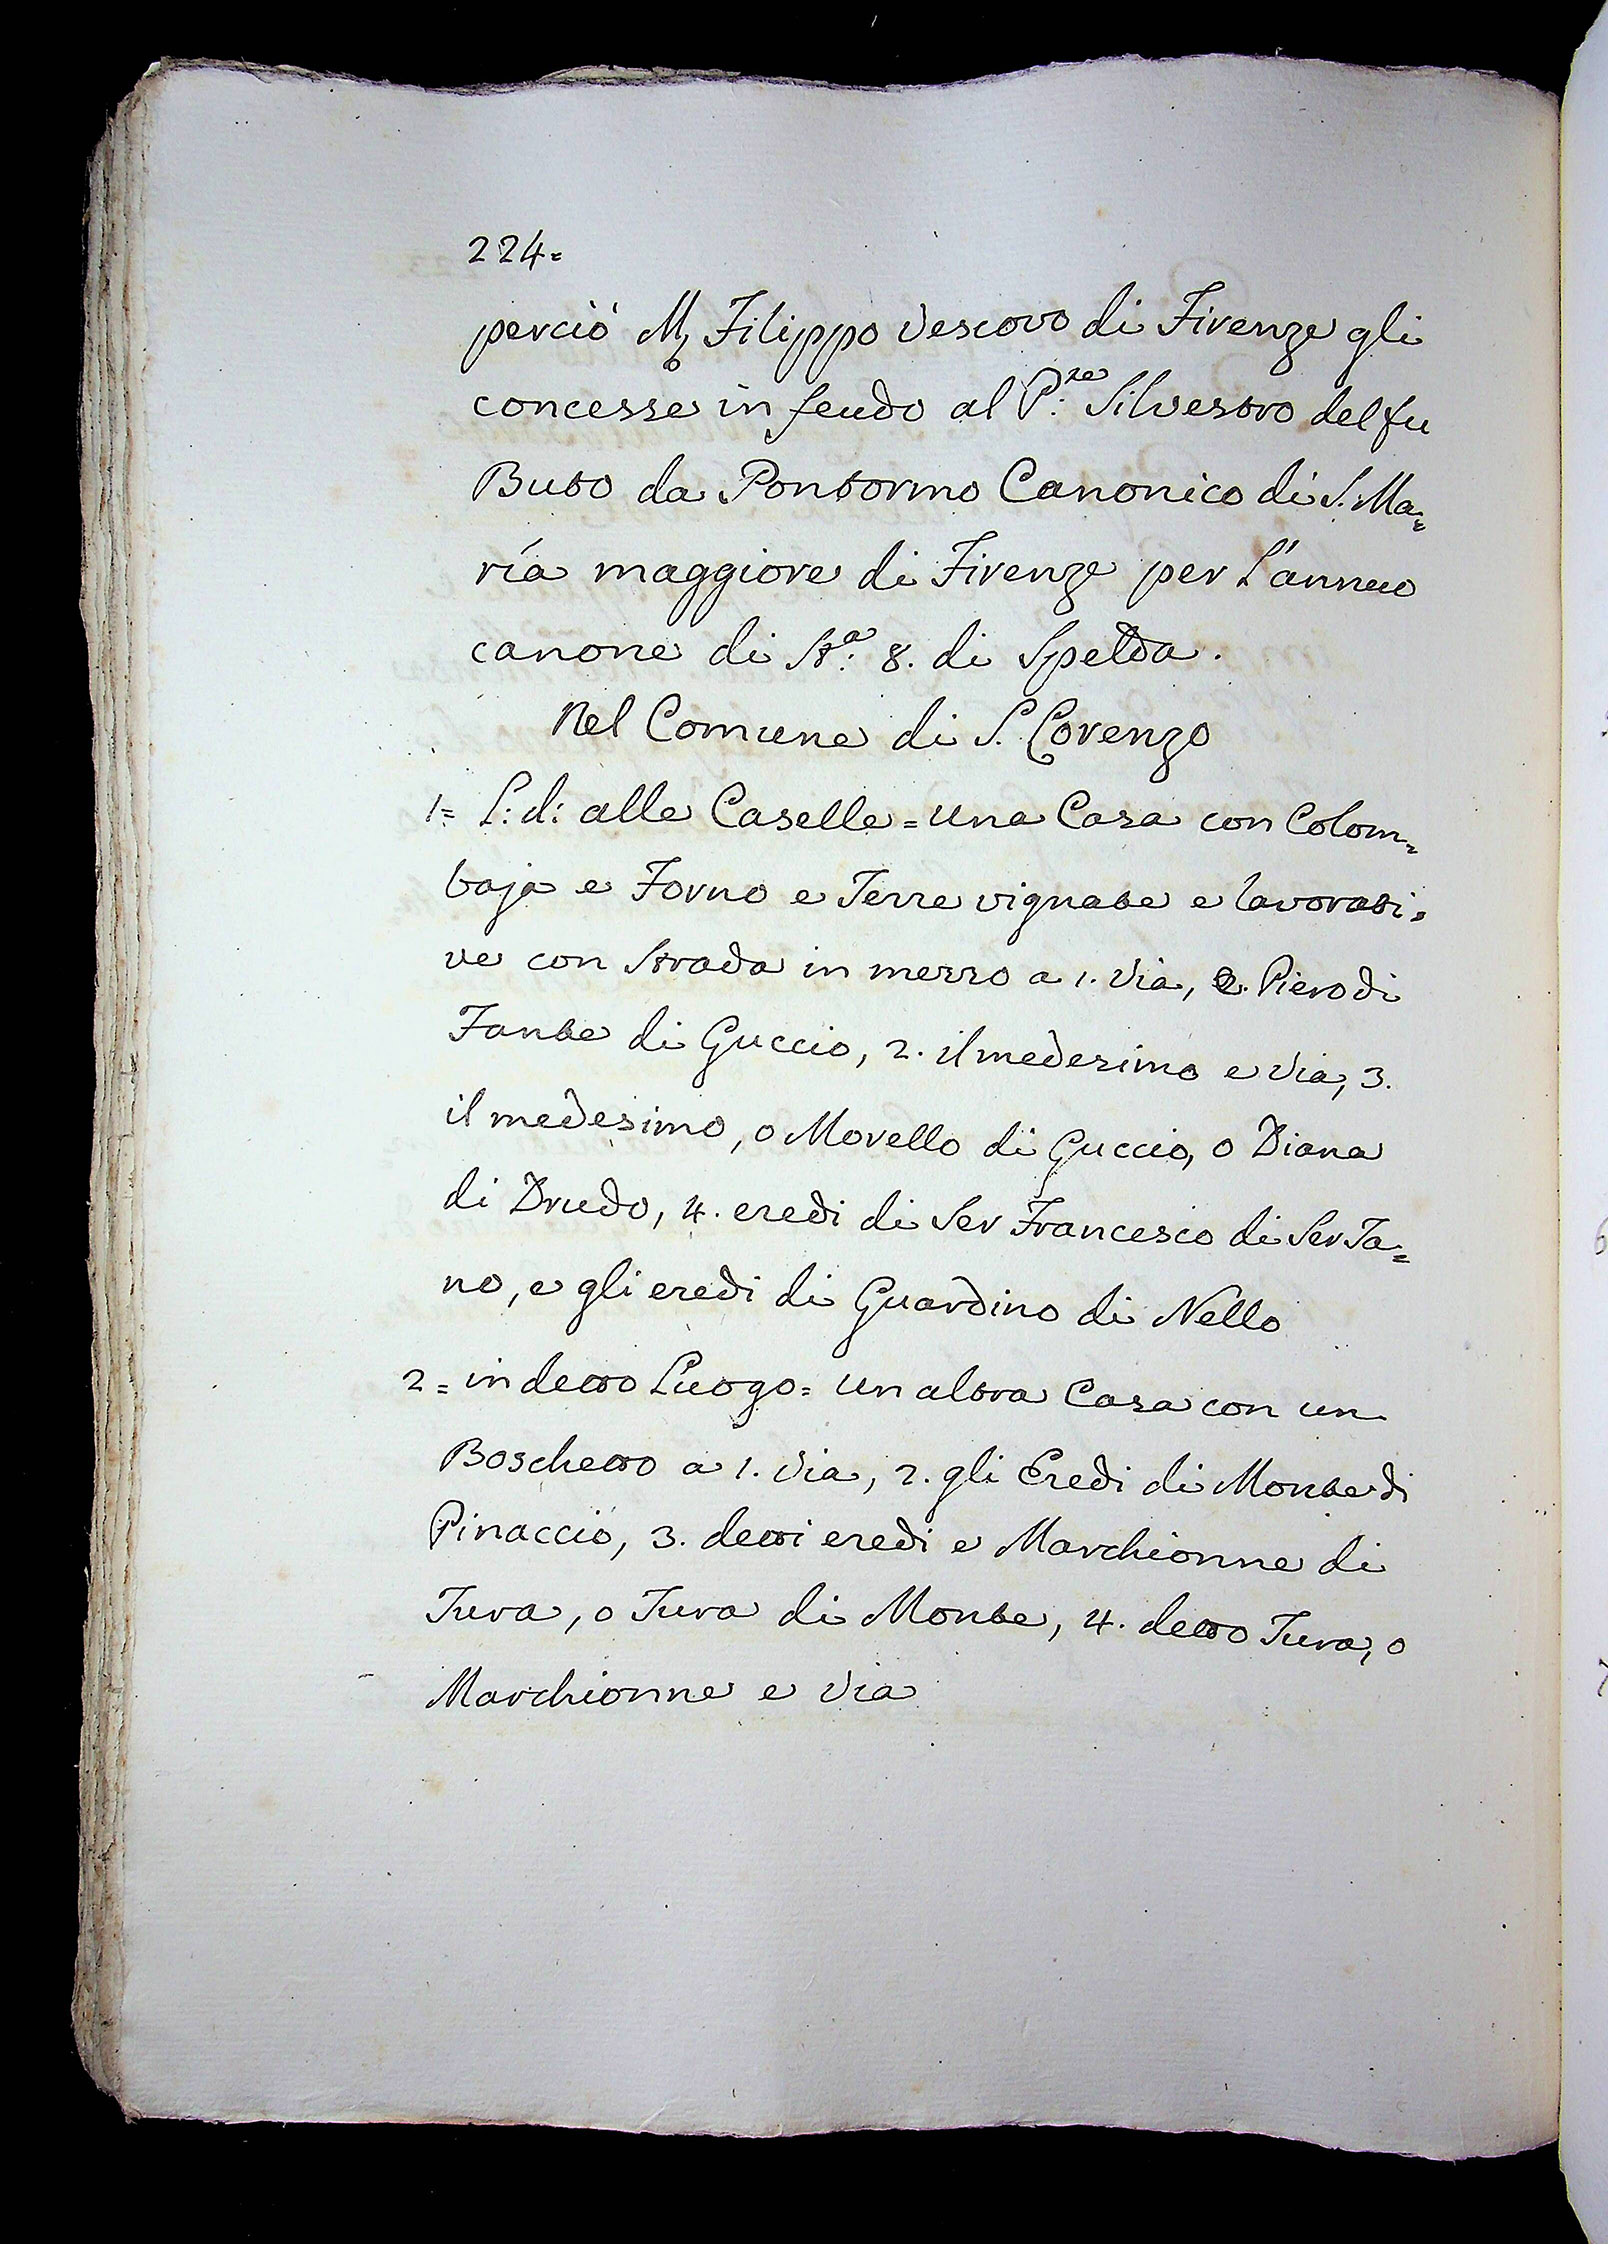 224=
perciò M, Filippo Vescovo di Firenze gli
concesse in feudo al P.re Silvestro del fu
Buto da Pontormo Canonico di S. Ma=
ria maggiore di Firenze per L'annuo
canone di St.a 8. di Spelda.
Nel Comune di S. Lorenzo
1= L: d: alle Caselle = una Casa con Colom=
baja e Forno e Terre vignate e lavorati=
ve con Strada in mezzo a 1. Via, 2. Piero di
Fante di Guccio, 2. il medesimo e Via, 3.
il medesimo, o Morello di Guccio, o Diana
di Drudo, 4. eredi di Ser Francesco di Ser Ta=
no, e gli eredi di Guardino di Nello
2= in detto Luogo= un altra Casa con un
Boschetto a 1. Via, 2. gli Eredi di Monte di
Pinaccio, 3. detti eredi e Marchionne di
Tura, o Tura di Monte, 4. detto Tura, o
Marchionne e Via